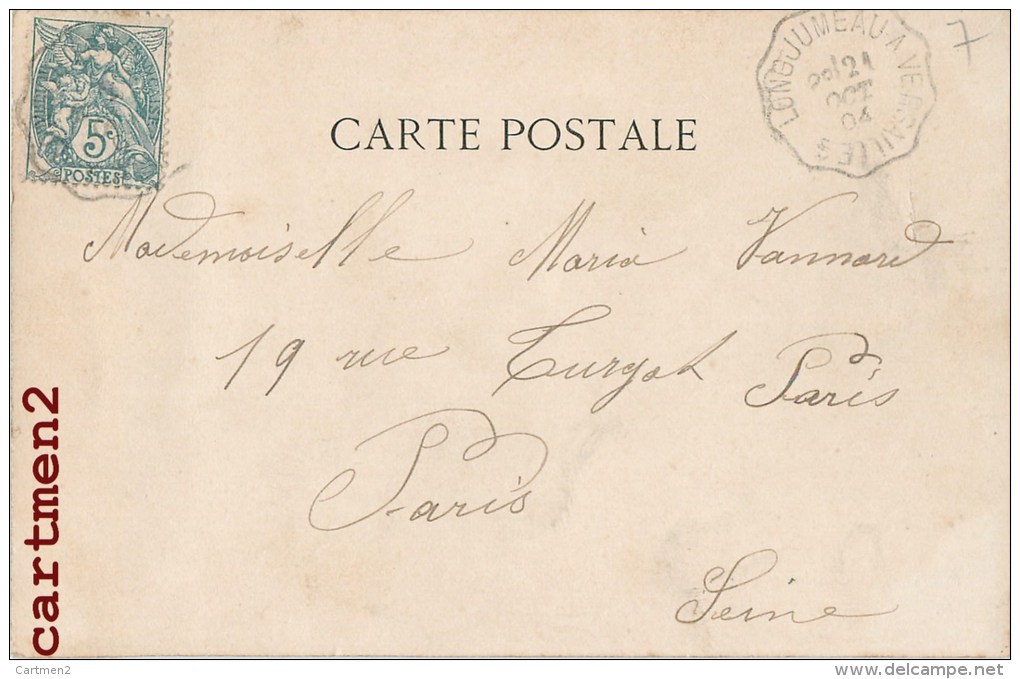 5c
POSTES
LONGJUMEAU A VERSAILLES
21
OCT
04
7
CARTE POSTALE
Mademoiselle Maria Vannard
19 rue Turgot Paris
Paris
Seine
cartmen2
Cartmen2
www.delcampe.net